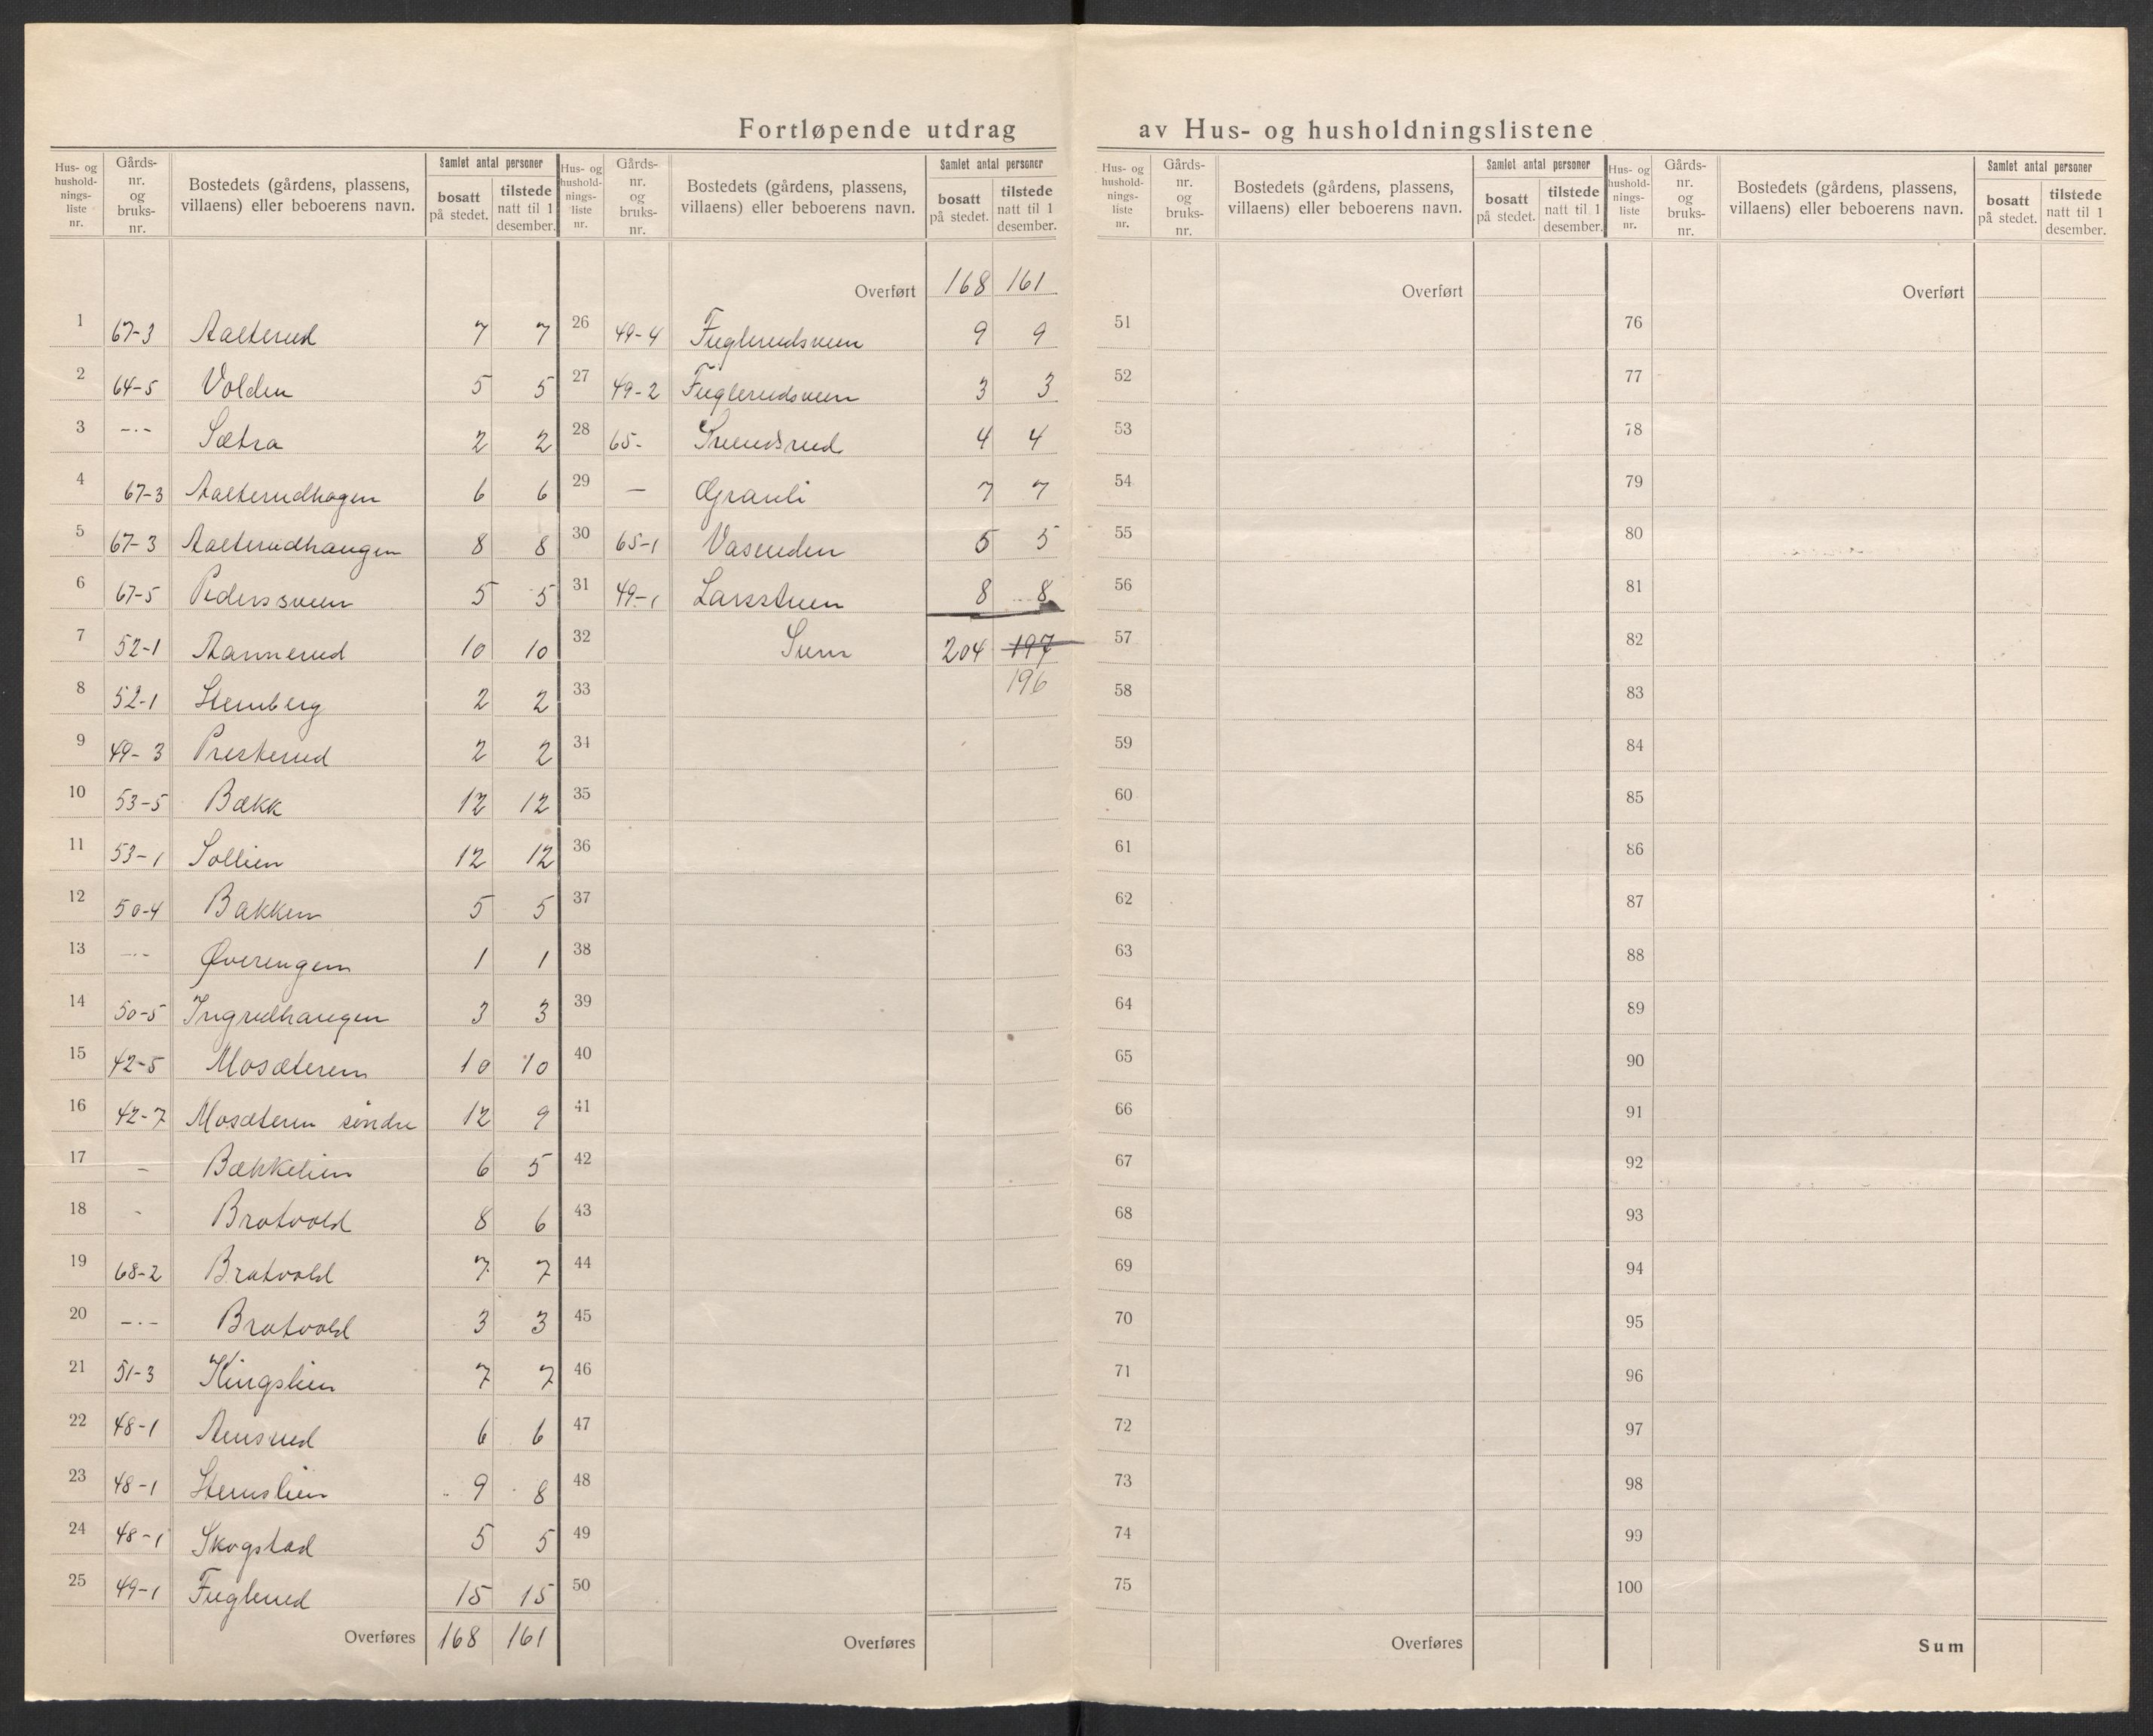 Fortløpende utdrag av Hus- og husholdningslistene
Hus- og husholdnings-liste nr. | Gårds-nr. og bruks-nr. | Bostedets (gårdens, plassens, villaens) eller beboerens navn. | Samlet antal personer | bosatt på stedet. | tilstede natt til 1 desember.
1 67-3 Aalterud 7 7
2 64-5 Volden 5 5
3 -·- Sætra 2 2
4 67-3 Aalterudhagen 6 6
5 67-3 Aalterudhaugen 8 8
6 67-5 Pederssveen 5 5
7 52-1 Aannerud 10 10
8 52-1 Stenberg 2 2
9 49-3 Presterud 2 2
10 53-5 Bækk 12 12
11 53-1 Sollien 12 12
12 50-4 Bakken 5 5
13 -·- Øverengen 1 1
14 50-5 Ingridhaugen 3 3
15 42-5 Mosæteren 10 10
16 42-7 Mosæteren søndre 12 9
17 - Bækkelien 6 5
18 - Bratvold 8 6
19 68-2 Bratvold 7 7
20 -·- Bratvold 3 3
21 51-3 Kingslien 7 7
22 48-1 Amsrud 6 6
23 48-1 Stenslien 9 8
24 48-1 Skogstad 5 5
25 49-1 Fuglerud 15 15
Overføres 168 161
Hus- og husholdnings-liste nr. | Gårds-nr. og bruks-nr. | Bostedets (gårdens, plassens, villaens) eller beboerens navn. | Samlet antal personer | bosatt på stedet. | tilstede natt til 1 desember.
Overført 168 161
26 49-4 Fuglerudsveen 9 9
27 49-2 Fuglerudsveen 3 3
28 65- Svendsrud 4 4
29 — Granli 7 7
30 65-1 Vasenden 5 5
31 49-1 Larsstuen 8 8
32 Sum 204 197
33 196
34
35
36
37
38
39
40
41
42
43
44
45
46
47
48
49
50
Overføres
Hus- og husholdnings-liste nr. | Gårds-nr. og bruks-nr. | Bostedets (gårdens, plassens, villaens) eller beboerens navn. | Samlet antal personer | bosatt på stedet. | tilstede natt til 1 desember.
Overført
51
52
53
54
55
56
57
58
59
60
61
62
63
64
65
66
67
68
69
70
71
72
73
74
75
Overføres
Hus- og husholdnings-liste nr. | Gårds-nr. og bruks-nr. | Bostedets (gårdens, plassens, villaens) eller beboerens navn. | Samlet antal personer | bosatt på stedet. | tilstede natt til 1 desember.
Overført
76
77
78
79
80
81
82
83
84
85
86
87
88
89
90
91
92
93
94
95
96
97
98
99
100
Sum